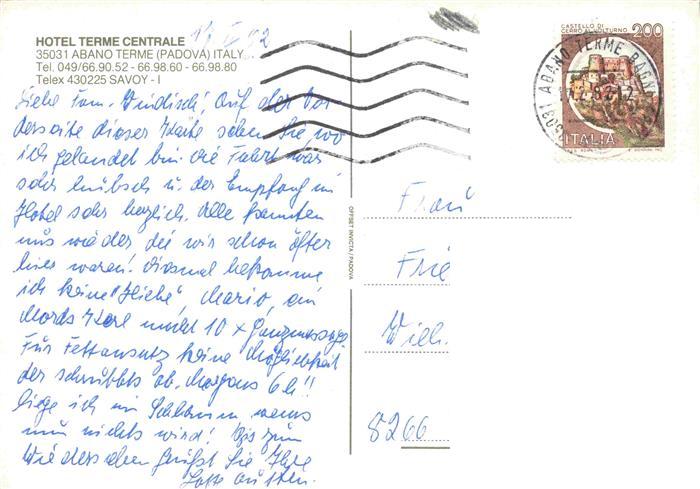 HOTEL TERME CENTRALE
35031 ABANO TERME (PADOVA) ITALY
Tel. 049/66.90.52 - 66.98.60 - 66.98.80
Telex 430225 SAVOY - I
Liebe Fam. Windisch! Auf der Vor
derseite dieser Karte sehen Sie, wo
ich gelandet bin. die Fahrt war
sehr hübsch u. der Empfang im
Hotel sehr herzlich. Alle kannten
uns wieder die wir schon öfter
hier waren! diesmal bekomme
ich keine "Hiebe", Mario, ein
Mords Kerl macht 10 x Ganzmassage.
Für Fettansatz keine Möglichkeit
der schrubbts ab. Morgens 6 h!!
liege ich im Schlamm wenns
nur nichts wird! Bis zum
Wiedersehen grüßt Sie Ihre
Lotte
OFFSET INVICTA / PADOVA
CASTELLO DI
CERRO AL VOLTURNO
200
ITALIA
35031 ABANO TERME BAGNI
Frau
8266